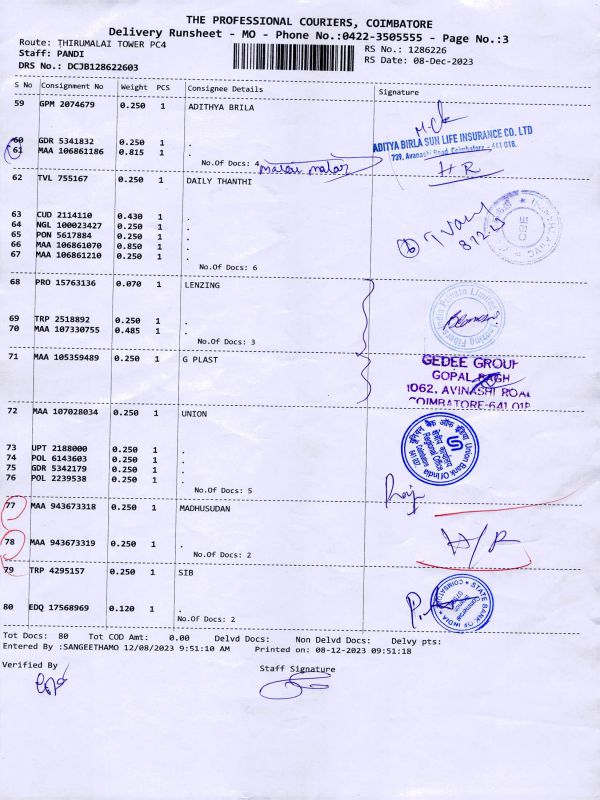 THE PROFESSIONAL COURIERS, COIMBATORE
Delivery Runsheet - MO - Phone No.:0422-3505555 - Page No.:3
Route: THIRUMALAI TOWER PC4
RS No.: 1286226
Staff: PANDI
RS Date: 08-Dec-2023
DRS No.: DCJB128622603
S No Consignment No Weight PCS Consignee Details Signature
59 GPM 2074679 0.250 1 ADITHYA BRILA
60 GDR 5341832 0.250 1 .
ADITYA BIRLA SUN LIFE INSURANCE CO. LTD
61 MAA 106861186 0.815 1 .
739, Avanashi Road, Coimbatore - 641 018.
No.Of Docs: 4
H R
62 TVL 755167 0.250 1 DAILY THANTHI
63 CUD 2114110 0.430 1 .
64 NGL 100023427 0.250 1 .
65 PON 5617884 0.250 1 .
66 MAA 106861070 0.850 1 .
67 MAA 106861210 0.250 1 .
No.Of Docs: 6
68 PRO 15763136 0.070 1 LENZING
69 TRP 2518892 0.250 1 .
70 MAA 107330755 0.485 1 .
No.Of Docs: 3
71 MAA 105359489 0.250 1 G PLAST
GEDEE GROUP
GOPAL BAGH
1062, AVINASHI ROAD
COIMBATORE-641 018
72 MAA 107028034 0.250 1 UNION
यूनियन बैंक ऑफ इंडिया
Union Bank Of India
Regional Office
Coimbatore
641 037
73 UPT 2188000 0.250 1 .
74 POL 6143603 0.250 1 .
75 GDR 5342179 0.250 1 .
76 POL 2239538 0.250 1 .
No.Of Docs: 5
77 MAA 943673318 0.250 1 MADHUSUDAN
78 MAA 943673319 0.250 1 .
H/R
No.Of Docs: 2
79 TRP 4295157 0.250 1 SIB
STATE BANK OF INDIA
80 EDQ 17568969 0.120 1 .
No.Of Docs: 2
Tot Docs: 80 Tot COD Amt: 0.00 Delvd Docs: Non Delvd Docs: Delvy pts:
Entered By :SANGEETHAMO 12/08/2023 9:51:10 AM Printed on: 08-12-2023 09:51:18
Verified By
Staff Signature